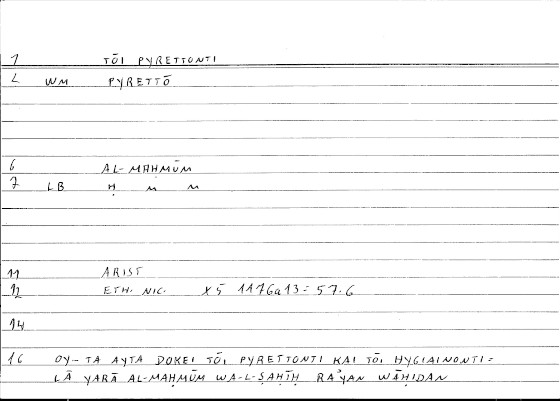 1 TŌI PYRETTONTI
2 WM PYRETTŌ
6 AL-MAḤMŪM
7 LB Ḥ M M
11 ARIST
12 ETH. NIC. X5 1176a13 = 57.6
14
16 OY- TA AYTA DOKEI TŌI PYRETTONTI KAI TŌI HYGIAINONTI =
LĀ YARĀ AL-MAḤMŪM WA-L-ṢAḤĪḤ RAʾYAN WĀḤIDAN